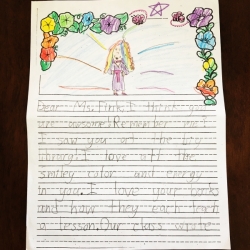 Dear Ms. Fink: I think you
are awesome! Remember
I saw you at the big
library! I love all the
smiley color and energy
in you. I love your
and how they each teach
a lesson. Our class wrote